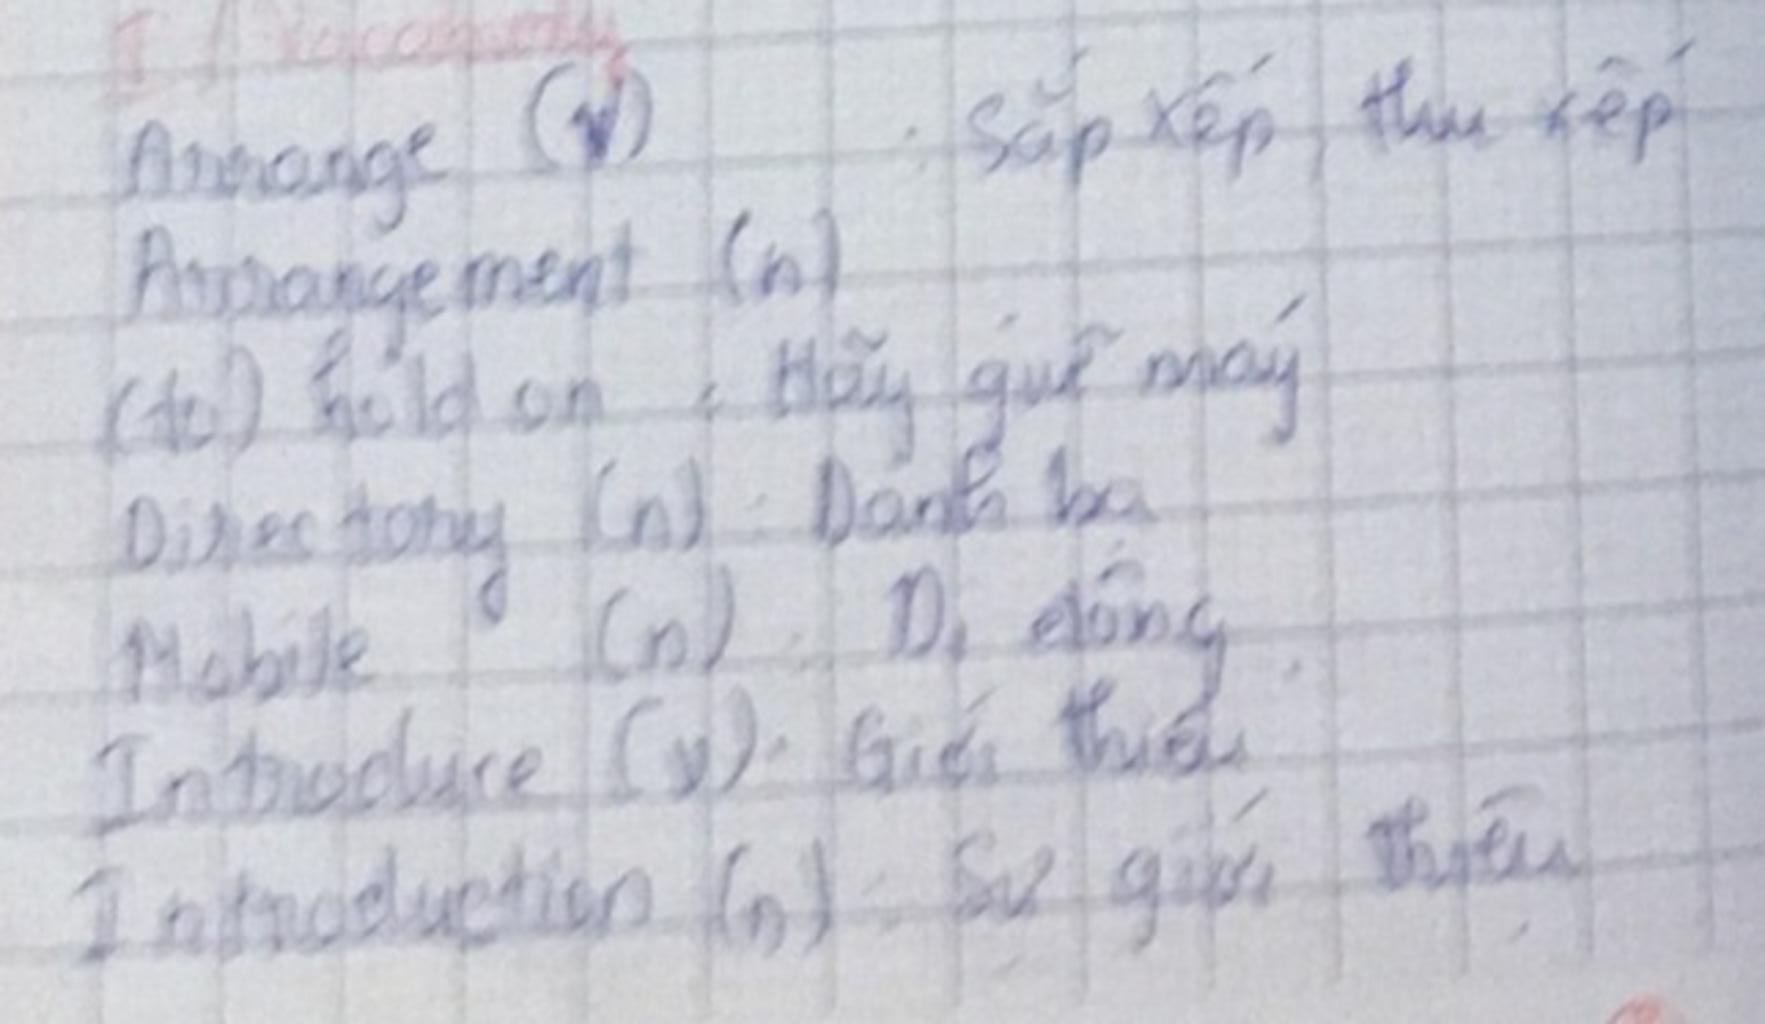 I / Vocabulary
Arrange (v) : Sắp xếp, thu xếp
Arrangement (n)
(to) hold on : Hãy giữ máy
Directory (n) : Danh bạ
Mobile (n) : Di động
Introduce (v) : Giới thiệu
Introduction (n) : Sự giới thiệu